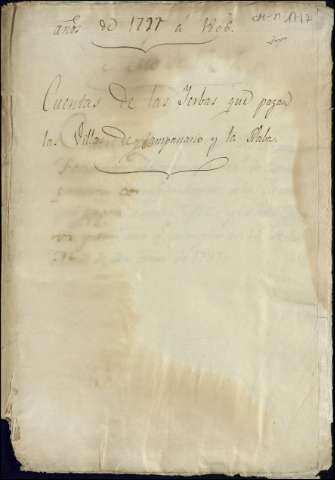 años de 1797 á 1806.
Cuentas de las Jerbas que pagan
las Villas de Campanario y la Haba.